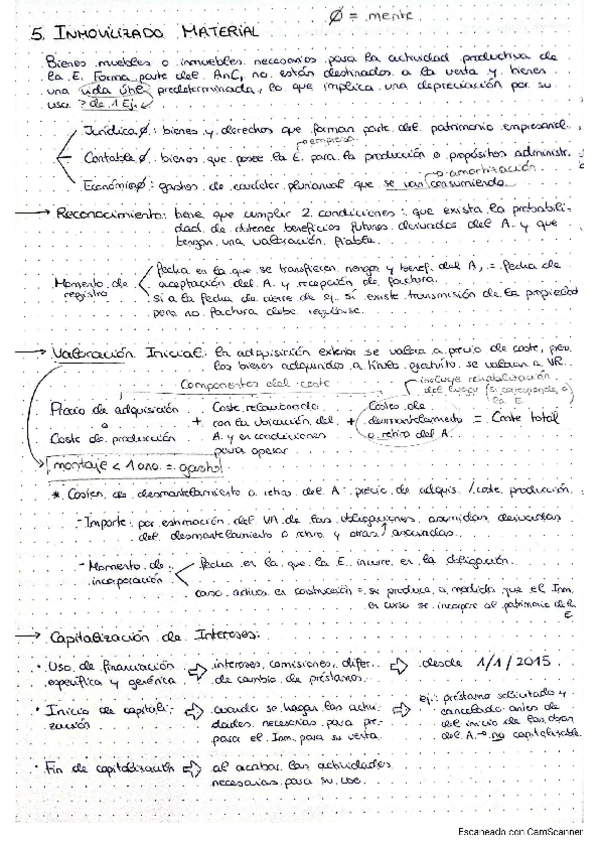 Ø = mente
5. INMOVILIZADO MATERIAL
Bienes muebles o inmuebles necesarios para la actividad productiva de
la E. Forma parte del AnC, no están destinados a la venta y tienen
una vida útil predeterminada, lo que implica una depreciación por su
uso. > de 1 Ej.
JurídicaØ: bienes y derechos que forman parte del patrimonio empresarial.
→ empresa
ContableØ: bienes que posee la E. para la producción o propósitos administr.
→ amortización
EconómicaØ: gastos de carácter plurianual que se van consumiendo
→ Reconocimiento: tiene que cumplir 2 condiciones: que exista la probabili-
dad de obtener beneficios futuros derivados del A. y que
tengan una valoración fiable.
Momento de registro
fecha en la que se transfieren riesgos y benef. del A, = fecha de
aceptación del A. y recepción de factura.
si a la fecha de cierre de ej. si existe transmisión de la propiedad
pero no factura debe registrarse.
→ Valoración Inicial: la adquisición exterior se valora a precio de coste, pero
los bienes adquiridos a título gratuito se valoran a VR.
Componentes del coste
→ incluye rehabilitación
del lugar (si corresponde a
la E.
Precio de adquisición o Coste de producción + Coste relacionado con la ubicación del A. y en condiciones para operar + Costes de desmantelamiento o retiro del A. = Coste total
montaje < 1 año = gasto!
* Costes de desmantelamiento o retiro del A: precio de adquis. / coste producción.
- Importe: por estimación del VA de las obligaciones asumidas derivadas
del desmantelamiento o retiro y otras asociadas.
- Momento de incorporación
fecha en la que la E. incurre en la obligación.
caso activos en construcción = se produce a medida que el Inm.
en curso se incorpore al patrimonio de la
E.
→ Capitalización de Intereses:
· Uso de financiación específica y genérica ⇨ intereses, comisiones, difer. de cambio de préstamos. ⇨ desde 1/1/2015
· Inicio de capitalización ⇨ cuando se hagan las actividades necesarias para preparar el Inm. para su venta. ⇨ ej.: préstamo solicitado y cancelado antes de del inicio de las obras del A. → no capitalizable.
· Fin de capitalización ⇨ al acabar las actividades
necesarias para su uso.
Escaneado con CamScanner